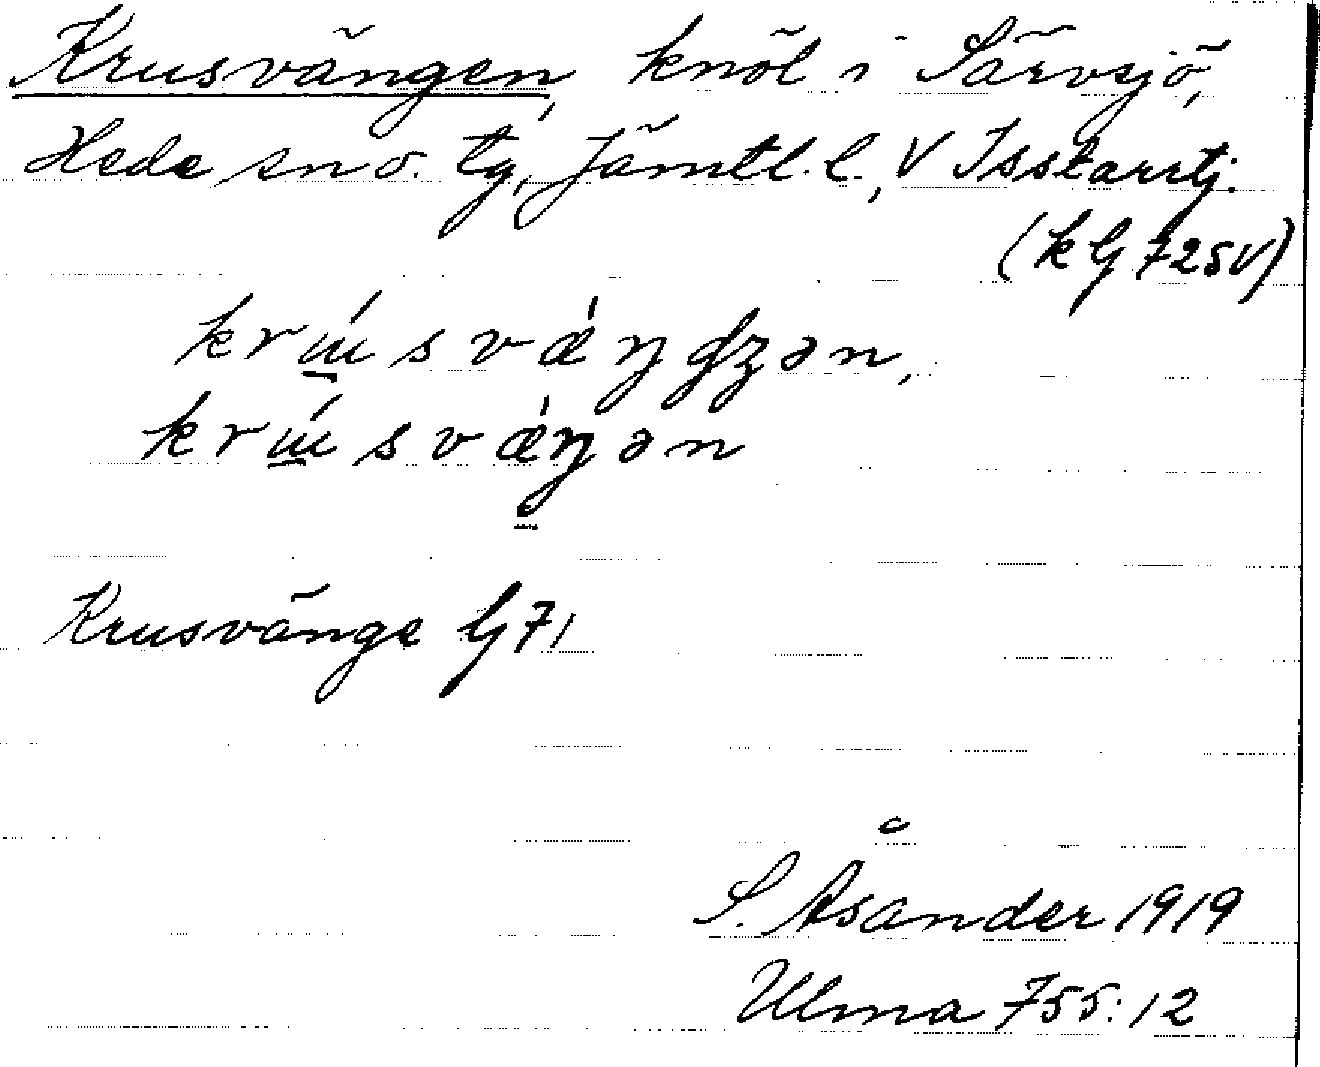 Krusvängen, knöl i Särvsjö,
Hede sn o. tg, Jämtl. l., V Isstarrtj.
(k G 72 SV)
krɯ́svǽŋʤən,
krɯ́svǽŋən
Krusvänge G 71
S. Åsander 1919
Ulma 755:12